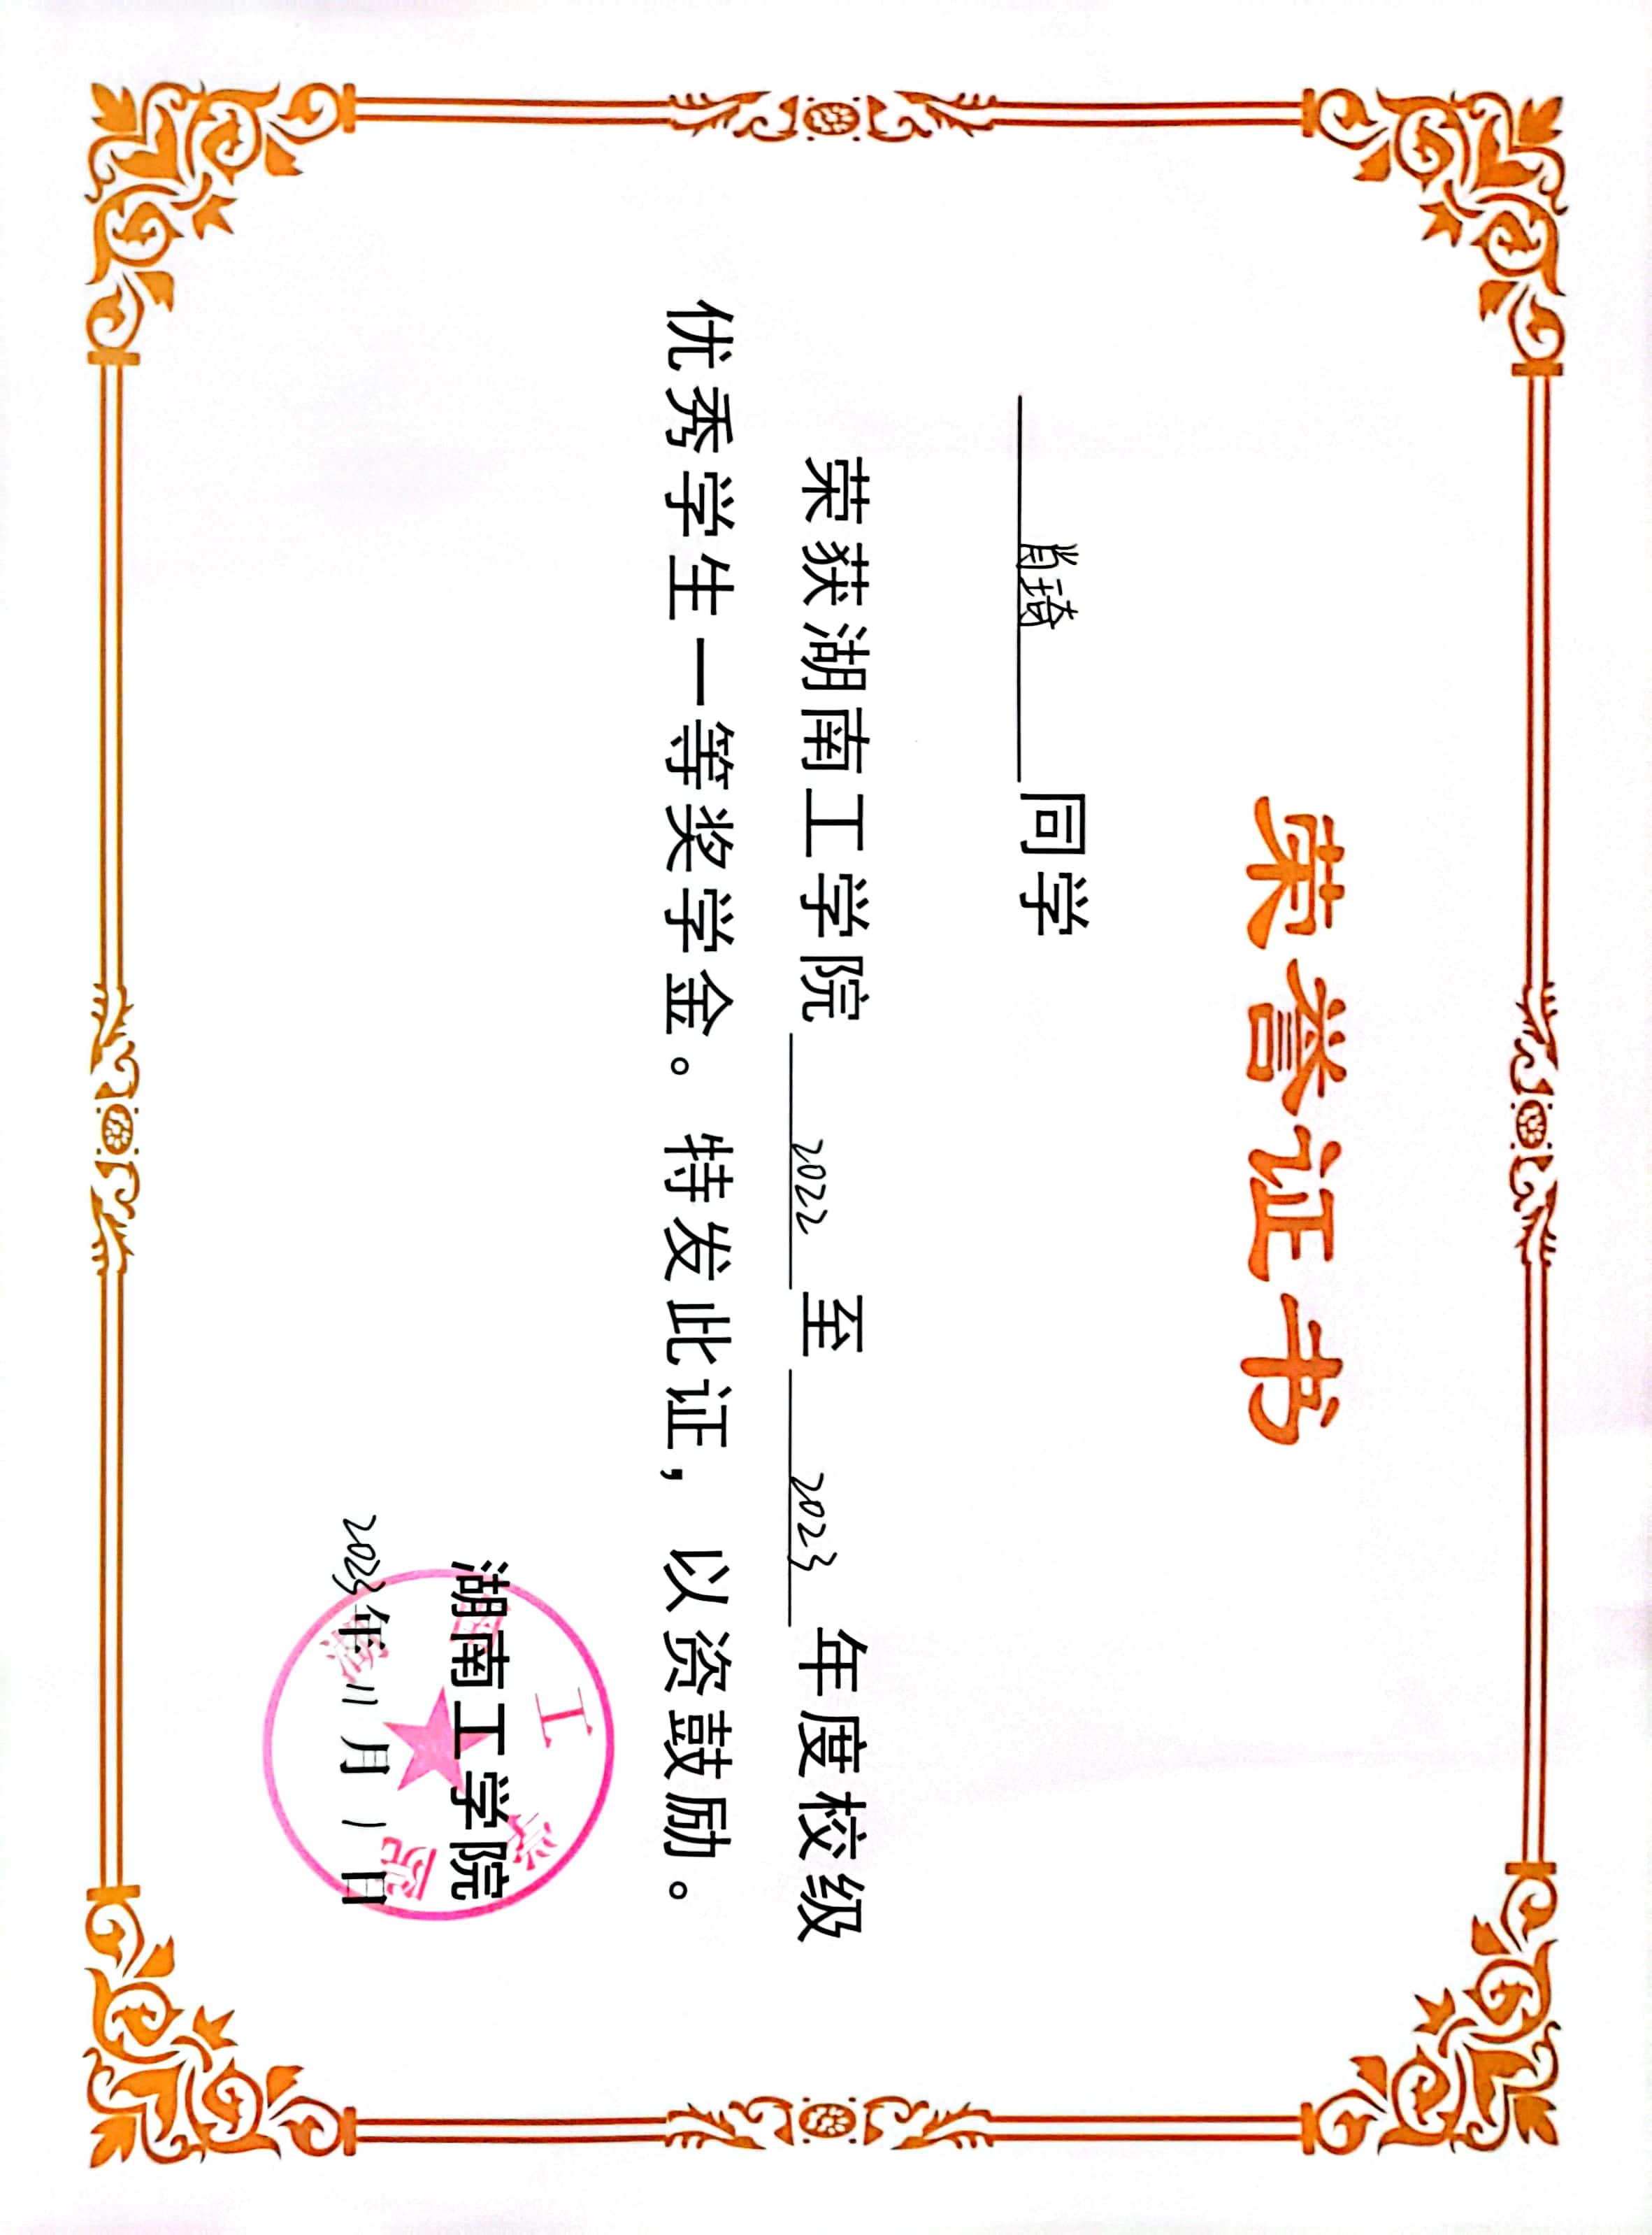 荣誉证书
肖琦 同学
荣获湖南工学院 2022 至 2023 年度校级
优秀学生一等奖学金。特发此证，以资鼓励。
湖南工学院
2023年11月1日
湖南工学院